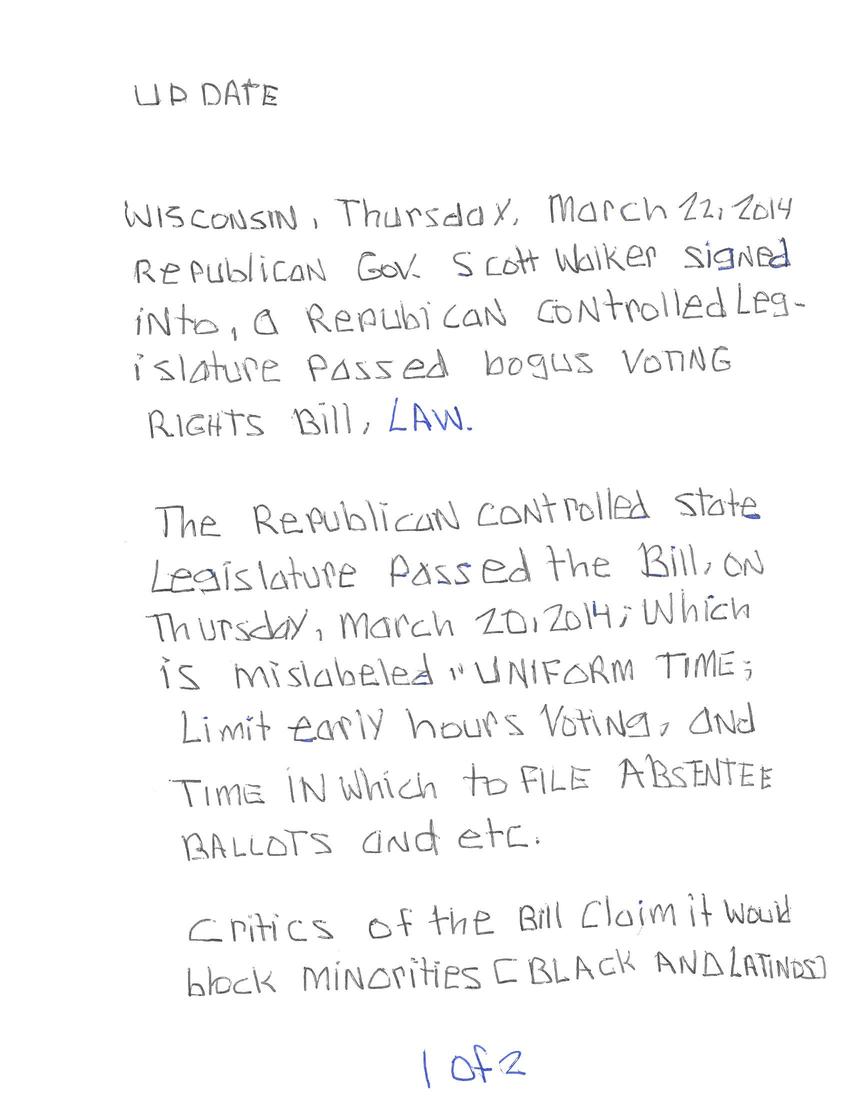 UPDATE
WISCONSIN, Thursday, March 22, 2014
Republican Gov. Scott Walker signed
into, a Repubican controlled Leg-
islature passed bogus VOTING
RIGHTS Bill, LAW.
The Republican controlled state
Legislature passed the Bill, on
Thursday, March 20, 2014; Which
is mislabeled "UNIFORM TIME;
Limit early hours Voting, and
TIME IN which to FILE ABSENTEE
BALLOTS and etc.
Critics of the Bill Claim it Would
block MINOrities [BLACK AND LATINOS]
1 of 2